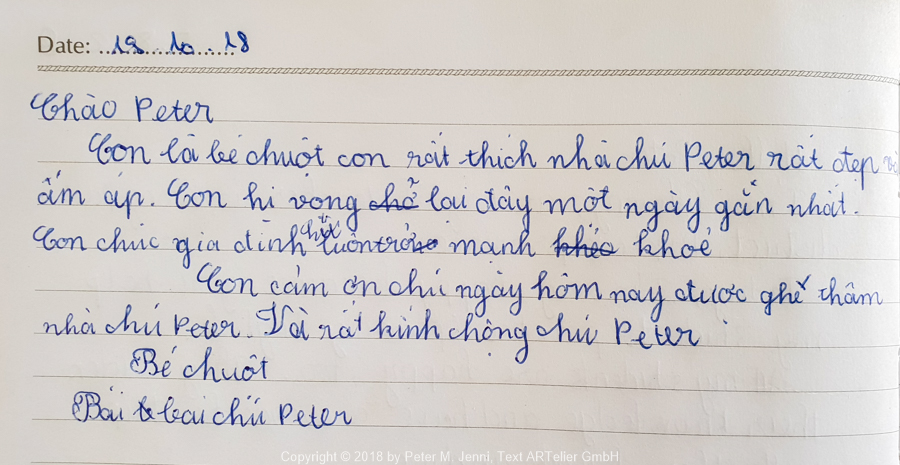 Date: 19 10 18
Chào Peter
Con là bé chuột con rất thích nhà chú Peter rất đẹp và
ấm áp. Con hi vọng chở lại đây một ngày gần nhất.
Con chúc gia đình chú luôn mạnh khoẻ
Con cảm ơn chú ngày hôm nay được ghé thăm
nhà chú Peter. Và rất kính chộng chú Peter
Bé chuột
Bái bai chú Peter
Copyright © 2018 by Peter M. Jenni, Text ARTeller GmbH